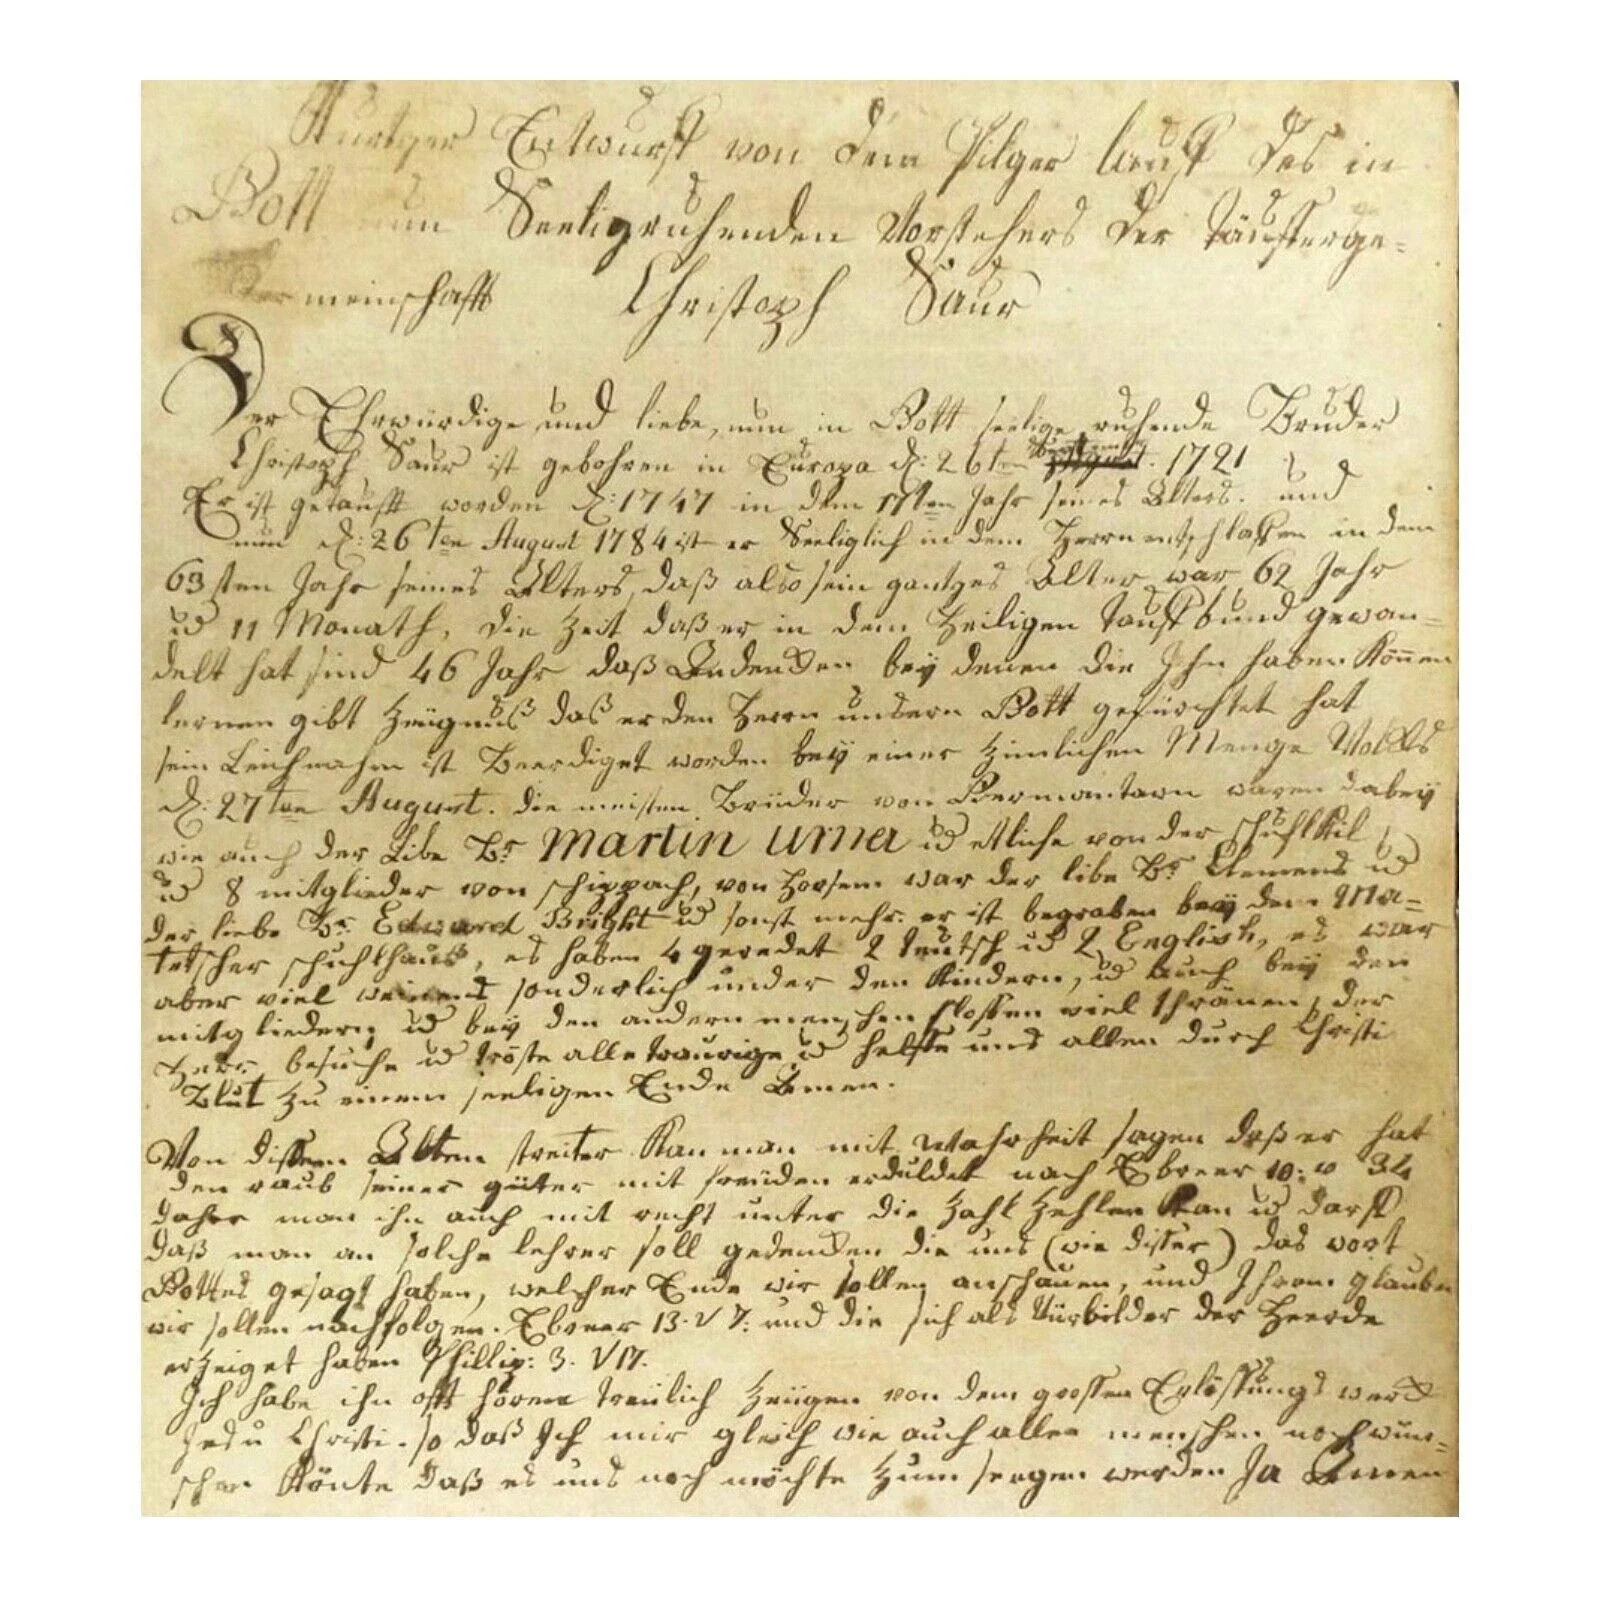 Kurtzer Entwurff von dem Pilger lauff des in
Gott nun Seeligruhenden Vorstehers der Täufferge=
meinschafft Christoph Saur
Der Ehrwürdige und liebe, nun in Gott seelig ruhende Bruder
Christoph Saur ist gebohren in Europa d: 26ten September 1721
Er ist getaufft worden d: 1747 in dem 17ten Jahr seines Alters. und
nun d: 26ten August 1784 ist er Seeliglich in dem Herrn entschlaffen in dem
63sten Jahr seines Alters, daß also sein gantzes Alter war 62 Jahr
ud 11 Monath, die Zeit daß er in dem Heiligen Tauffbund gewan=
delt hat sind 46 Jahr daß Andencken bey denen die Jhn haben können
lernen gibt Zeügnuß das er den Herrn unsern Gott gefürchtet hat
sein Leichnahm ist Beerdiget worden bey einer Zimlichen Menge Volcks
d: 27ten August. die meisten Brüder von Germantawn waren dabey
wie auch der Libe Br Martin Urner ud etliche von der schuhlkil
ud 8 mitglieder von schippach, von Horsem war der libe Br Clemens ud
der liebe Br Edward Bright ud sonst mehr. er ist begraben bey dem Ma=
tetscher schuhlhaus, es haben 4 geredet 2 teutsch ud 2 English, es war
aber viel weinens sonderlich under den Kindern, ud auch bey den
mitgliedern, ud bey den andern menschen flossen viel thränen, der
Herr besuche ud tröste alle traurige ud helffe uns allen durch Christi
Blut zu einem seeligen Ende Amen.
Von dissem Alten streiter kan man mit Wahrheit sagen daß er hat
den raub seiner güter mit freüden erduldet nach Ebreer 10: v 34
daher man ihn auch mit recht unter die Zahl Zehlen kan ud darff
daß man an solche lehrer soll gedencken die uns (wie disser) das wort
Gottes gesagt haben, welcher Ende wir sollen anschauen, und Jhrem glauben
wir sollen nachfolgen. Ebreer 13. v 7: und die sich als Vürbilder der Heerde
erZeiget haben Phillip: 3. V 17.
Jch habe ihn offt hören treülich Zeügen von dem grossen Erlössungs werck
Jesu Christi. so daß Jch mir gleich wie auch allen menschen noch wün=
schen könte daß es uns noch möchte zum seegen werden Ja Amen